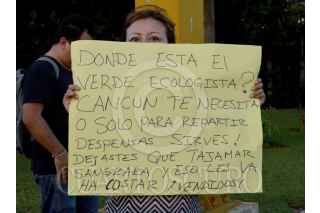 DONDE ESTA El
VERDE ECOLOGISTA?
CANCUN TE NECESITA
O SOLO PARA REPARTIR
DESPENSAS SIRVES!
DEJASTES QUE TAJAMAR
SANGRARA Y ESO LES VA
HA COSTAR ¡VENDIDOS!